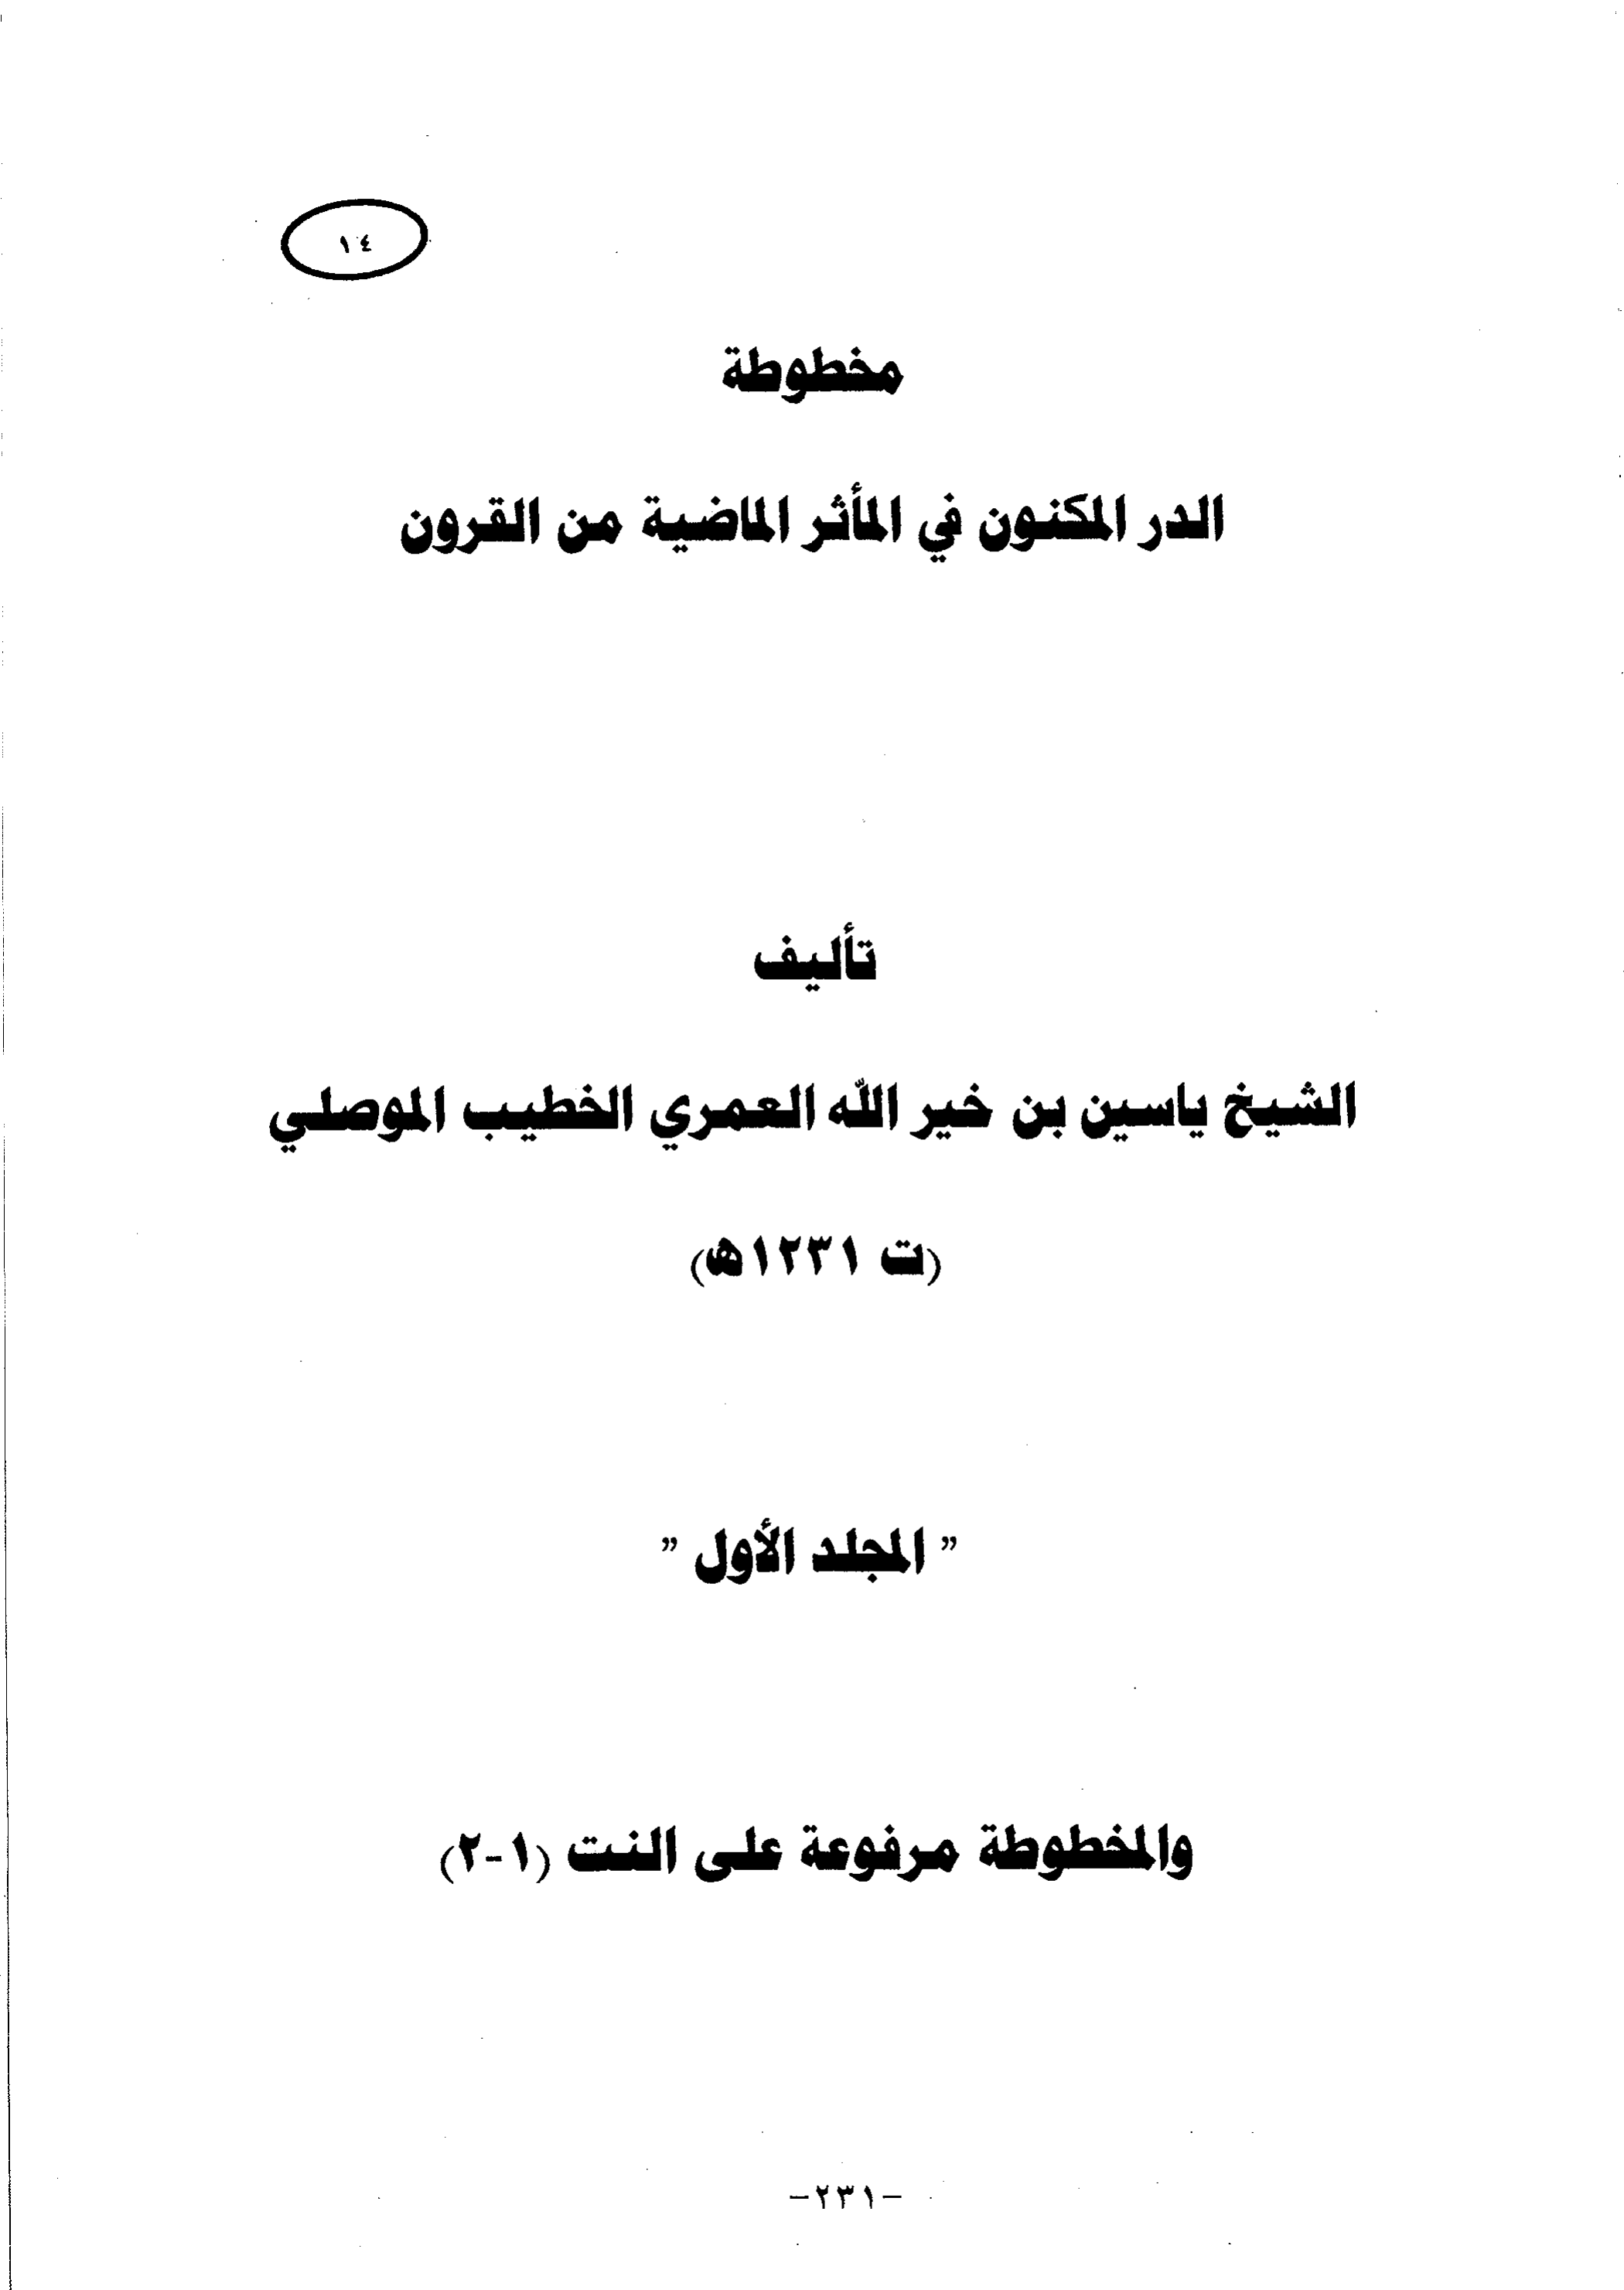 ١٤
مخطوطة
الدر المكنون في المأثر الماضية من القرون
تأليف
الشيخ ياسين بن خير الله العمري الخطيب الموصلي
(ت ١٢٣١هـ)
" المجلد الأول "
والمخطوطة مرفوعة على النت (١-٢)
-٢٣١-